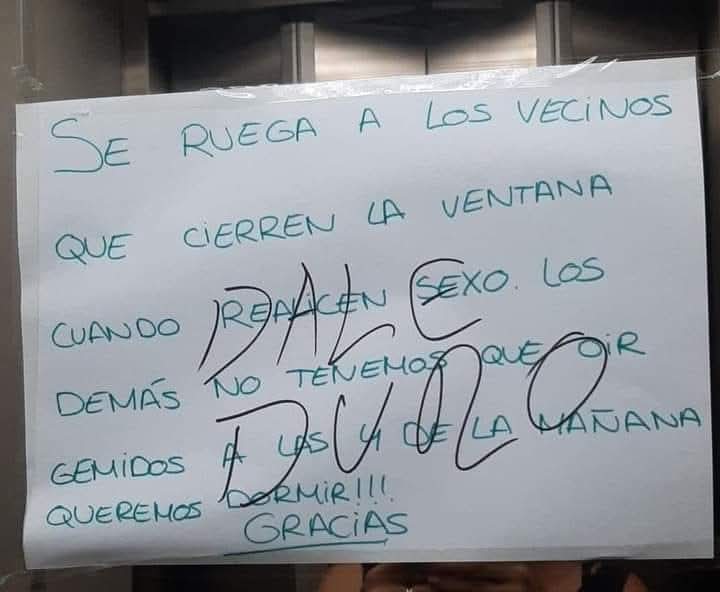 SE RUEGA A LOS VECINOS
QUE CIERREN LA VENTANA
CUANDO REALICEN SEXO. LOS
DEMÁS NO TENEMOS QUE OIR
GEMIDOS A LAS 4 DE LA MAÑANA
QUEREMOS DORMIR!!!
GRACIAS
DALE
DURO